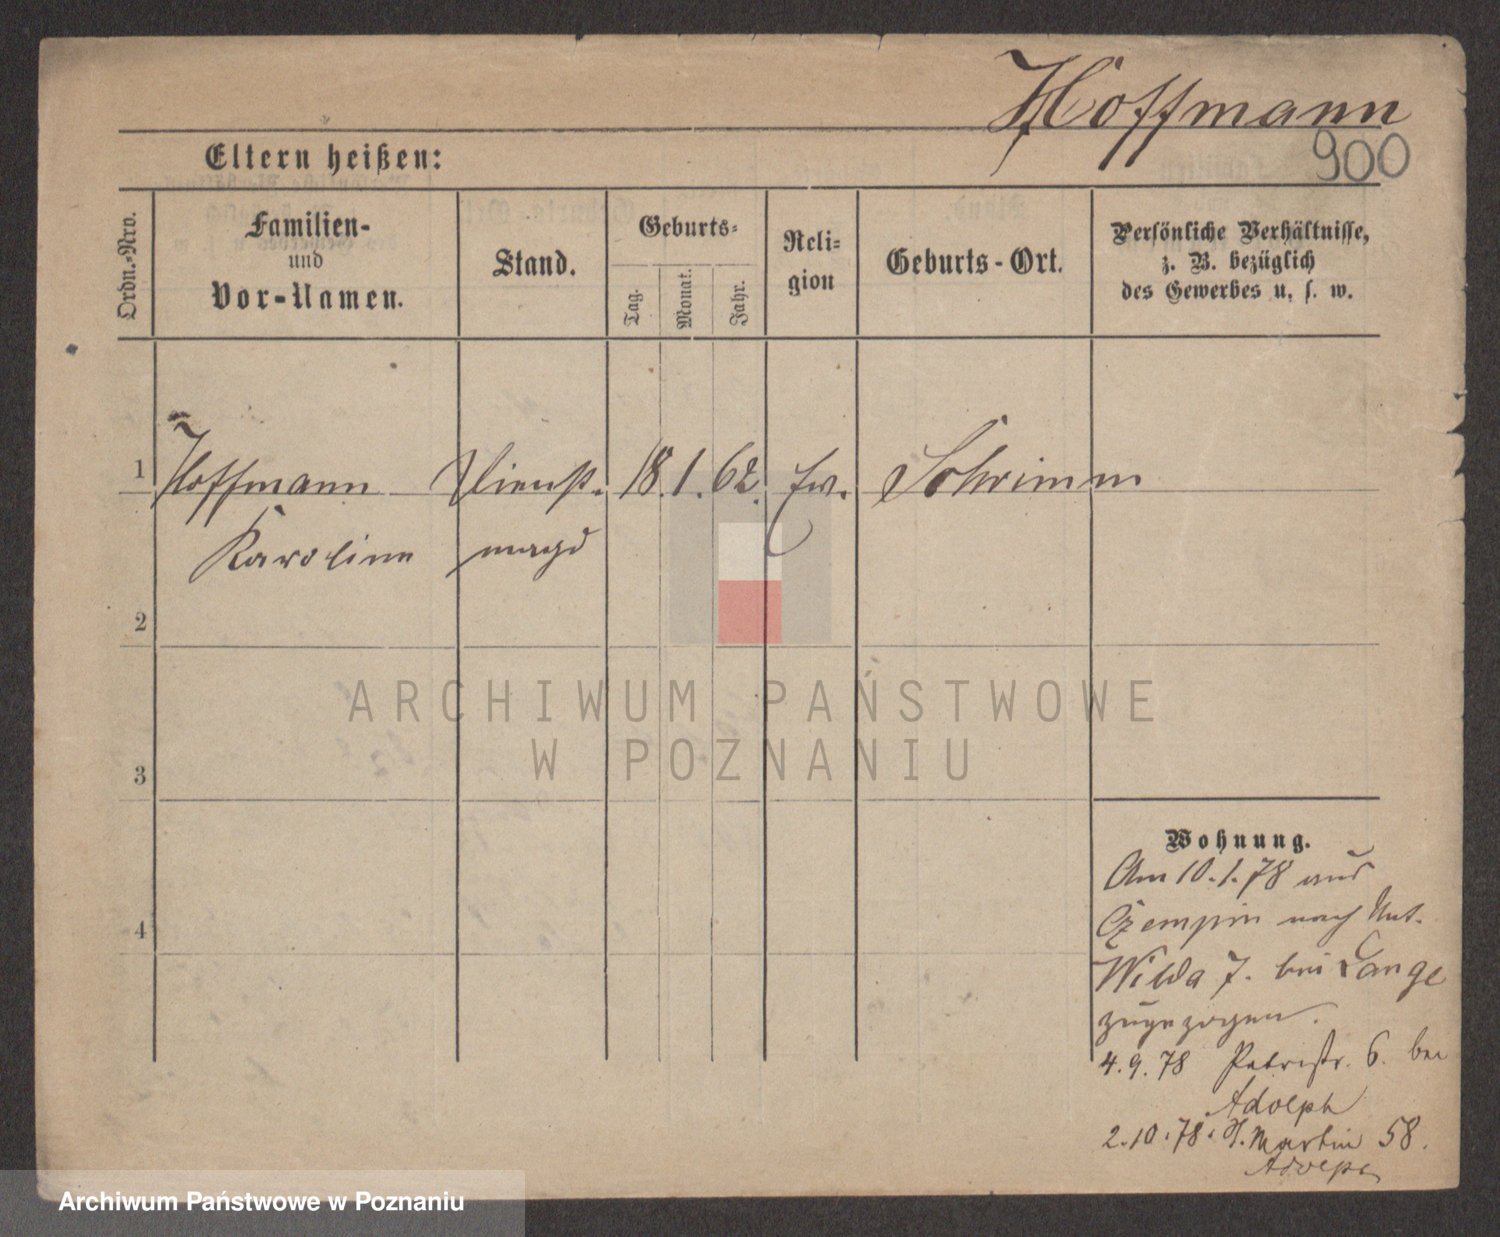 Hoffmann
900
Eltern heißen:
Ordn.-Nro.
Familien-
und
Vor-Namen.
Stand.
Geburts-
Tag.
Monat.
Jahr.
Reli-
gion
Geburts-Ort.
Persönliche Verhältnisse,
z. B. bezüglich
des Gewerbes u. s. w.
1 Hoffmann Dienst- 18. 1. 62. ev. Schrimm
Karoline magd
2
3
4
ARCHIWUM PAŃSTWOWE
W POZNANIU
Wohnung.
Am 10.1.78 aus
Czempin nach Unt.
Wilda 7. bei Lange
zugezogen.
4.9.78 Petristr. 6. bei
Adolph
2.10.78. St. Martin 58.
Adolph
Archiwum Państwowe w Poznaniu